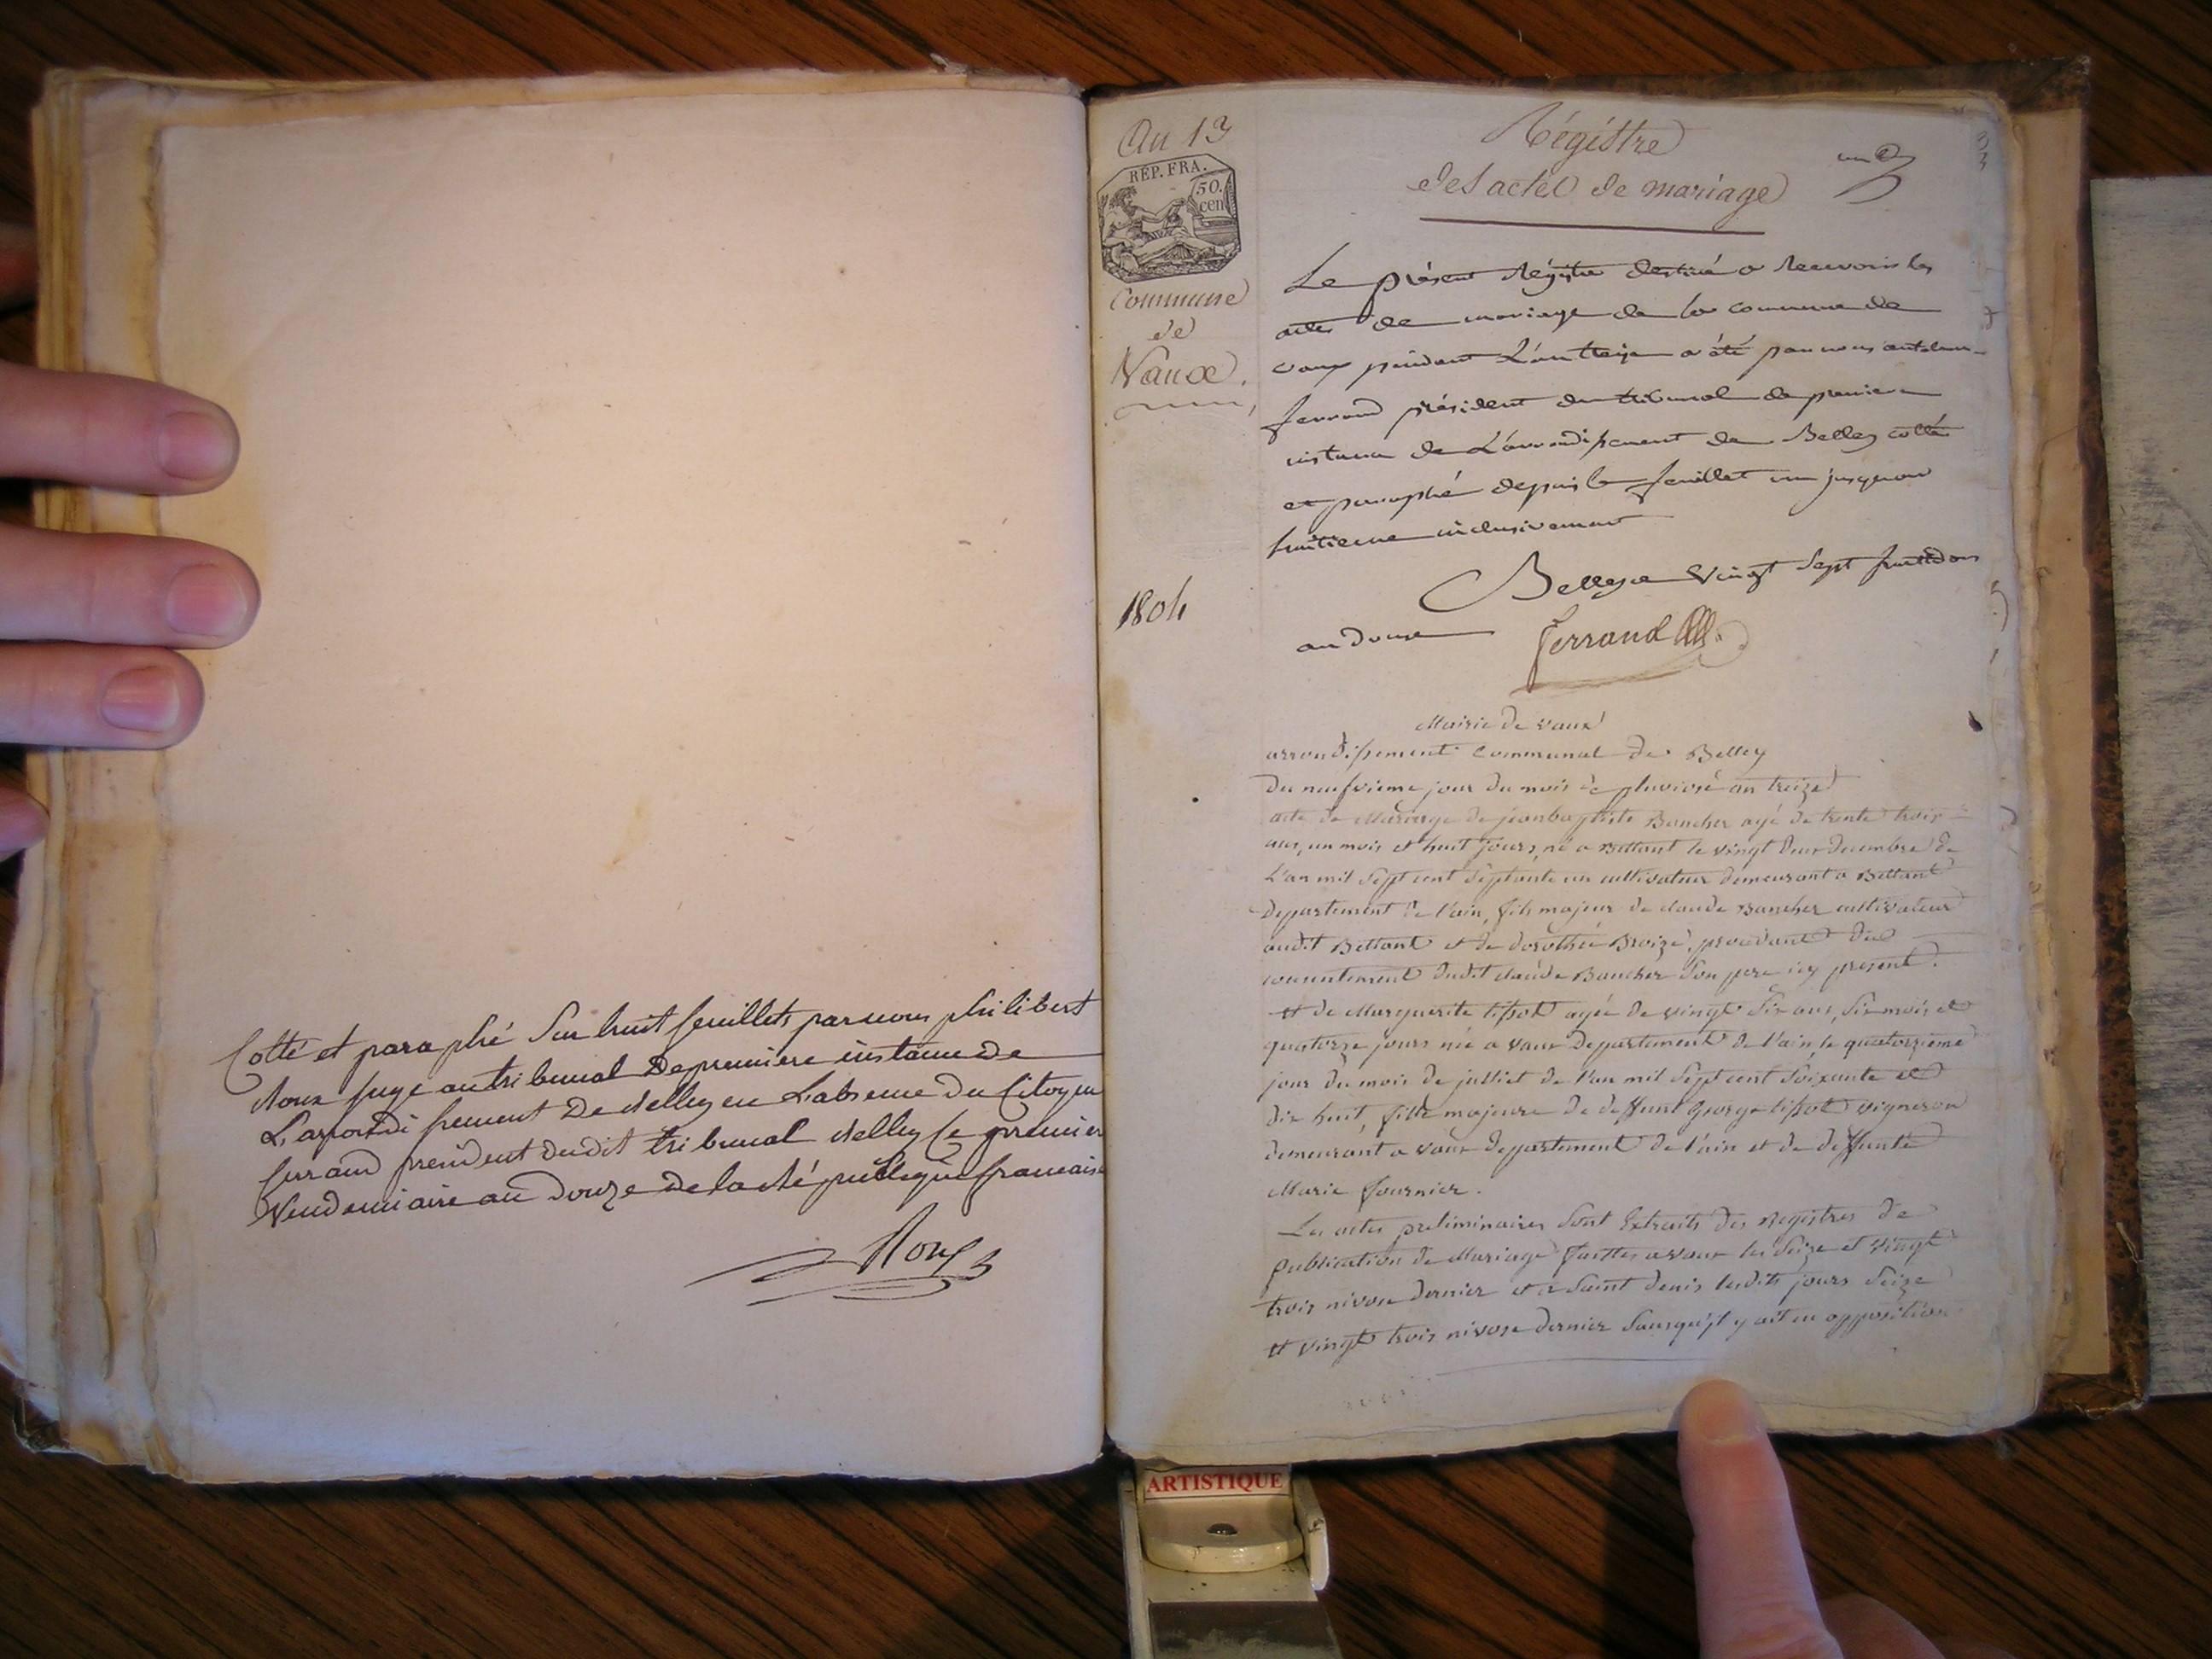 Cotté et paraphé Sur huit feuillets par nous philibert
Roux juge au tribunal De premiere instance de
L'arrondissement De Belley en L'absence du Citoyen
ferrand president dudit tribunal Belley le premier
Vendemiaire an Douze de la République francaise
Roux
An 13
RÉP. FRA.
50.
cen
Commune
de
Vaux.
1804
Régistre
des actes de mariage
un
Le présent Régistre destiné a Recevoir les
actes de mariage de la commune de
vaux pendant L'an treize a été par nous
ferrand président du tribunal de premiere
instance de L'arrondissement de Belley cotté
et paraphé depuis le feuillet un jusqu'au
huitieme inclusivement
Belley ce Vingt Sept fructidor
an Douze
ferrand
Mairie de vaux
arrondissement communal de Belley
Du neufvieme jour du mois de pluviose an treize
acte de Mariage de jean baptiste Bancher agé de trente trois
ans, un mois et huit jours, né a Bettant le vingt deux decembre de
L'an mil Sept cent Septante un cultivateur demeurant a Bettant
departement de l'ain, fils majeur de claude Bancher cultivateur
audit Bettant et de dorothée Broize, procedant du
consentement dudit claude Bancher Son pere icy present.
et de Marguerite tissot agée de vingt Six ans, Six mois et
quatorze jours née a vaux Departement de l'ain le quatorzieme
jour du mois de julliet de l'an mil Sept cent Soixante et
dix huit, fille majeure de deffunt George tissot vigneron
demeurant a vaux departement de l'ain et de deffunte
Marie fournier.
Les actes preliminaires Sont Extraits des Registres de
publication de Mariage faittes a vaux les Seize et vingt
trois nivose dernier et a Saint denis lesdits jours Seize
et vingt trois nivose dernier Sans qu'il y ait eu opposition
ARTISTIQUE